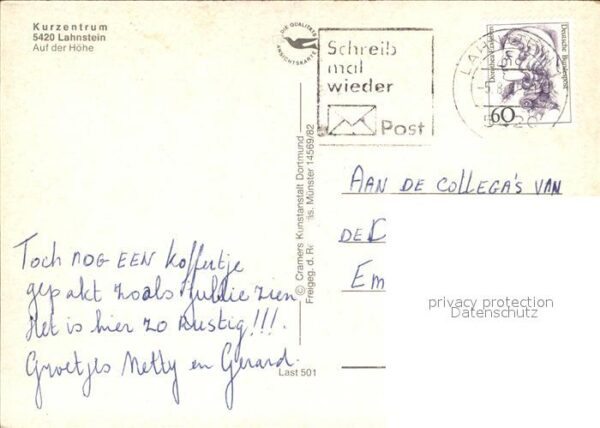 Kurzentrum
5420 Lahnstein
Auf der Höhe
DIE QUALITÄTS
ANSICHTSKARTE
Schreib
mal
wieder
Post
LAHNSTEIN
-5.8.
5420
Deutsche Bundespost
60
© Cramers Kunstanstalt Dortmund
Freigeg. d. Re is. Münster 14569/82
AAN DE COLLEGA'S VAN
DE
Em
privacy protection
Datenschutz
Toch NOG EEN koffertje
gepakt zoals jullie zien
Het is hier zo Rustig!!!.
Groetjes Netty en Gerard.
Last 501